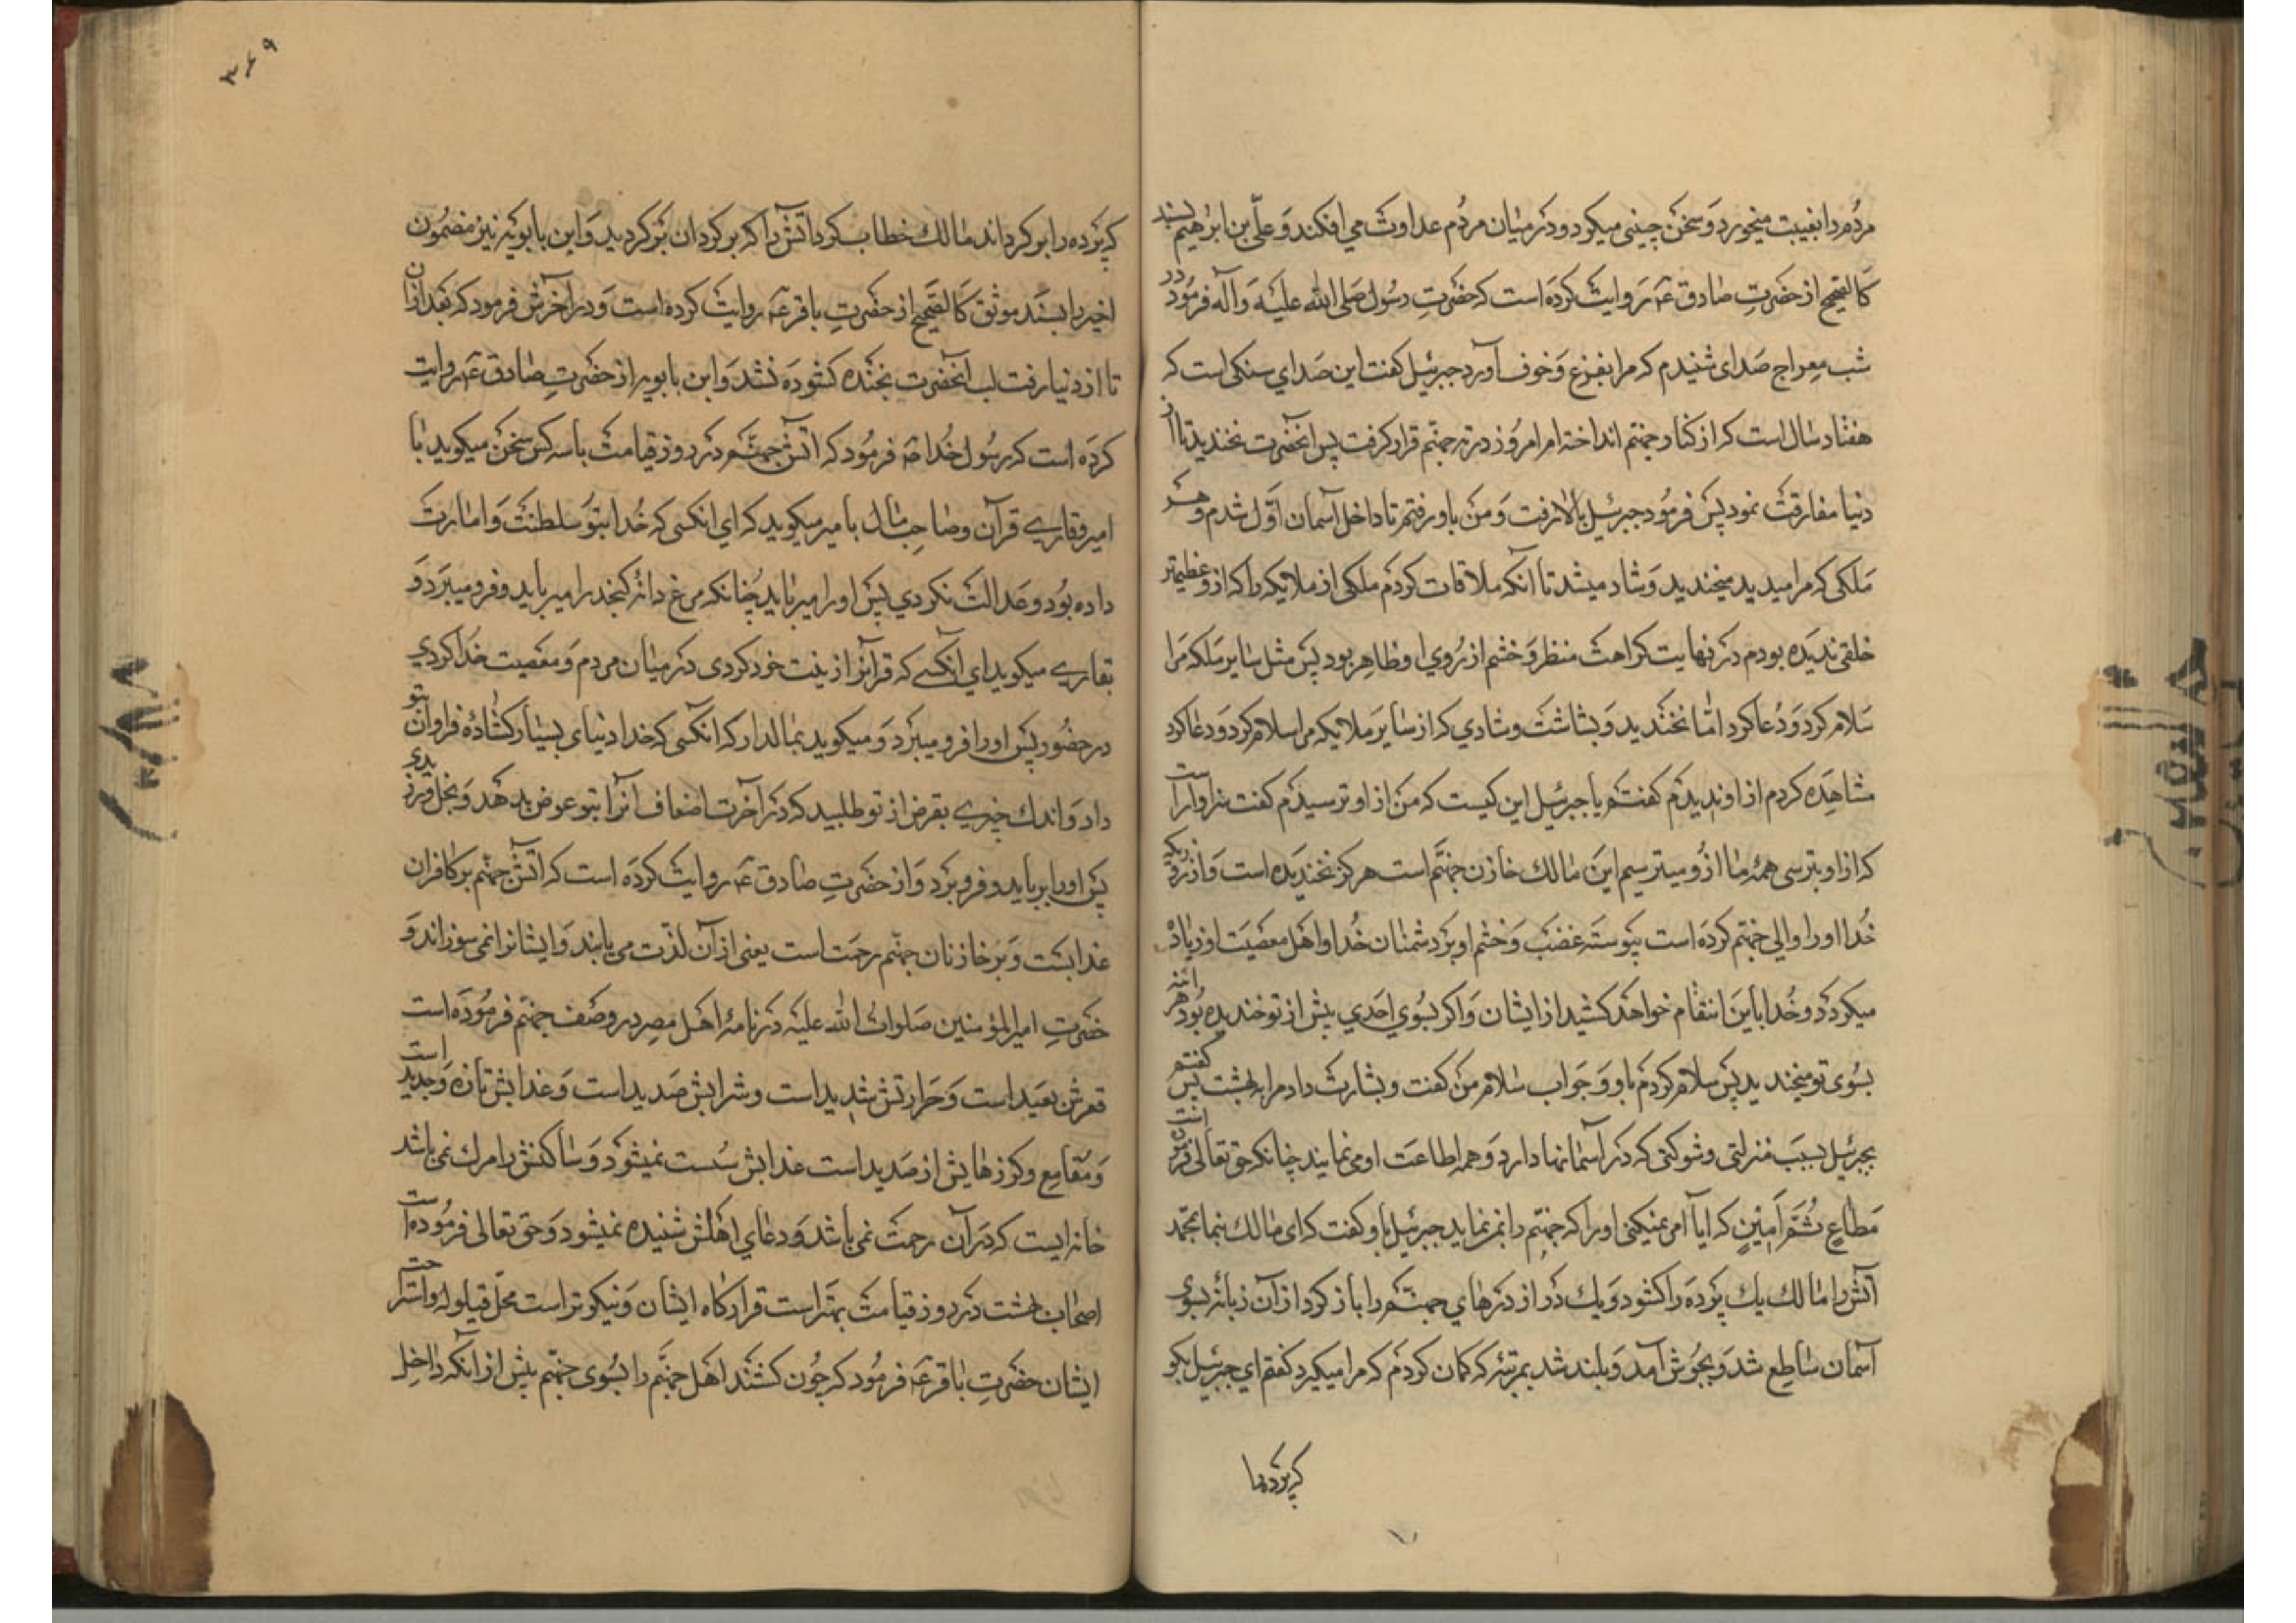 مردم را بغیبت میخورد و سخن چینی میکرد و در میان مردم عداوت می افکند و علی بن ابرهیم بسند
کالصحیح از حضرت صادق ع روایت کرده است که حضرت رسول صلی الله علیه و آله فرمود در
شب معراج صدای شنیدم که مرا بفزع و خوف آورد جبرئیل کفت این صدای سنکی است که
هفتاد سال است که از کنار جهنم انداخته ام امروز در ته جهنم قرار کرفت پس انحضرت نخندید تا از
دنیا مفارقت نمود پس فرمود جبرئیل بالا رفت و من باو رفتم تا داخل آسمان اول شدم و هر
ملکی که مرا میدید میخندید و شاد میشد تا آنکه ملاقات کردم ملکی از ملایکه را که از و عظیمتر
خلقی ندیده بودم در نهایت کراهت منظر و خشم از روی او ظاهر بود پس مثل سایر ملکه مرا
سلام کرد و دعا کرد اما نخندید و بشاشت و شادی که از سایر ملایکه مرا سلام کرد و دعا کرد
مشاهده کردم از او ندیدم کفتم یا جبرئیل این کیست که من از او ترسیدم کفت سزاوار است
که از او بترسی همه ما از و میترسیم این مالک خازن جهنم است هرکز نخندیده است و از روزیکه
خدا او را والی جهنم کرده است پیوسته غضب و خشم او بر دشمنان خدا و اهل معصیت او زیاده
میکردد و خدا باین انتقام خواهد کشید از ایشان و اکر بسوی احدی پیش از تو خندیده بود هراینه
بسوی تو میخندید پس سلام کردم باو و جواب سلام من کفت و بشارت داد مرا به بهشت پس کفتم
بجبرئیل بسبب منزلتی و شوکتی که در آسمانها دارد و همه اطاعت او می نمایند چنانکه حق تعالی فرموده است
مطاع ثم امین که ایا امر نمیکنی او را که جهنم را بمن نماید جبرئیل باو کفت که ای مالک بنما بمحمد
آتش را مالک یک پرده را کشود و یک در از درهای جهنم را باز کرد از آن زبانه بسوی
آسمان ساطع شد و بجوش آمد و بلند شد بمرتبه که کمان کردم که مرا میکیرد کفتم ای جبرئیل بکو
که پرده را
۳۶۹
که پرده را برکرداند مالک خطاب کرد آتش را که برکرد ان برکردید و ابن بابویه نیز مضمون
اخیر را بسند موثق کالصحیح از حضرت باقر ع روایت کرده است و در آخرش فرمود که بعد از ان
تا از دنیا رفت لب انحضرت بخنده کشوده نشد و ابن بابویه از حضرت صادق ع روایت
کرده است که رسول خدا ص فرمود که آتش جهنم در روز قیامت با سه کس سخن میکوید با
امیر و قاری قرآن و صاحب مال با میر میکوید که ای انکسی که خدا بتو سلطنت و امارت
داده بود و عدالت نکردی پس او را میرباید چنانکه مرغ دانه کنجد را میرباید و فرو میبرد و
بقاری میکوید ای آنکسی که قرآنرا زینت خود کردی در میان مردم و معصیت خدا کردی
در حضور پس او را فرو میبرد و میکوید بمالدار که انکسی که خدا دنیای بسیار کشاده فراوان بتو
داد و اندک چیزی بقرض از تو طلبید که در آخرت اضعاف آنرا بتو عوض بدهد و بخل ورزیدی
پس او را برباید و فرو برد و از حضرت صادق ع روایت کرده است که آتش جهنم بر کافران
عذابست و بر خازنان جهنم رحمت است یعنی از آن لذت می یابند و ایشانرا نمی سوزاند و
حضرت امیرالمؤمنین صلوات الله علیه در نامه اهل مصر در وصف جهنم فرموده است
قعرش بعید است و حرارتش شدید است و شرابش صدید است و عذابش تازه و جدید است
و مقامع و کرزهایش از صدید است عذابش سست نمیشود و ساکنش را مرک نمی باشد
خانه ایست که در آن رحمت نمی باشد و دعای اهلش شنیده نمیشود و حق تعالی فرموده است
اصحاب بهشت در روز قیامت بهتر است قرارکاه ایشان و نیکوتر است محل قیلوله و استراحت
ایشان حضرت باقر ع فرمود که چون کشند اهل جهنم را بسوی جهنم پیش از آنکه داخل